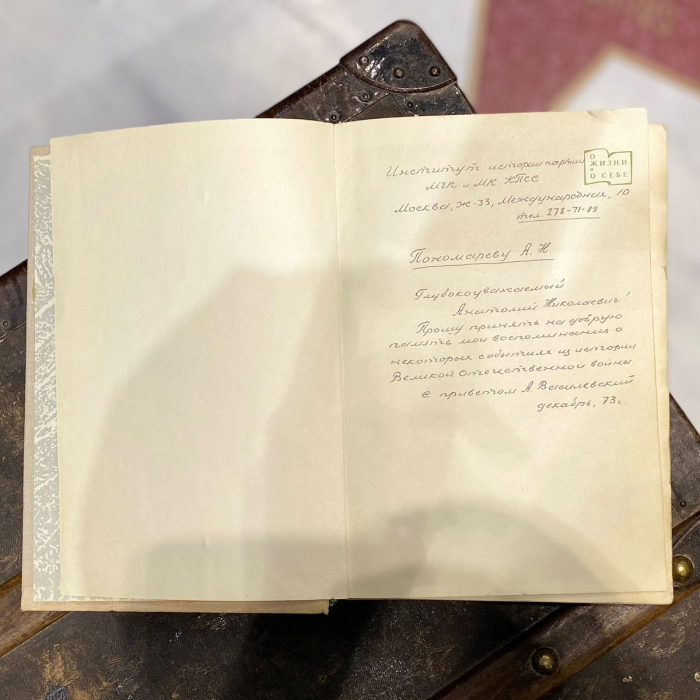 Институт истории партии
МГК и МК КПСС
Москва, Ж-33, Международная, 10
тел. 278-71-89
О
ЖИЗНИ
и
О СЕБЕ
Пономареву А. Н.
Глубокоуважаемый
Анатолий Николаевич!
Прошу принять на добрую
память мои воспоминания о
некоторых событиях из истории
Великой Отечественной войны
С приветом А. Василевский
декабрь, 73 г.